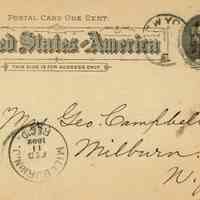 POSTAL CARD ONE CENT.
United States of America
THIS SIDE IS FOR ADDRESS ONLY.
Geo Campbell
Milburn
N.
MILBURN N.J.
FEB
11
1892
REC'D.